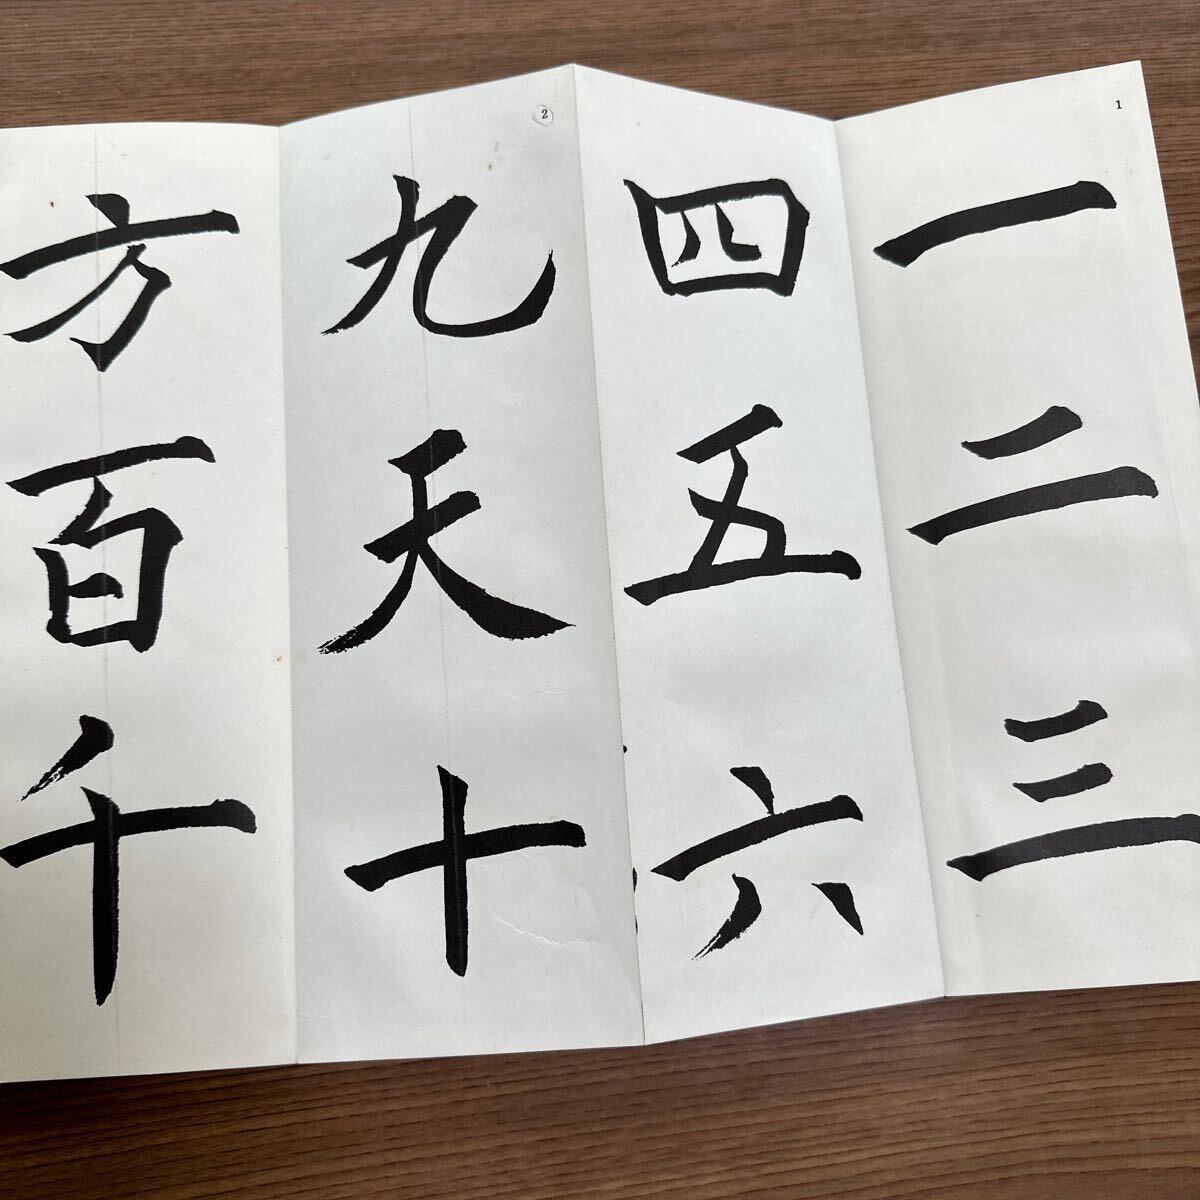 1
一二三
四五六
2
九天十
方百千